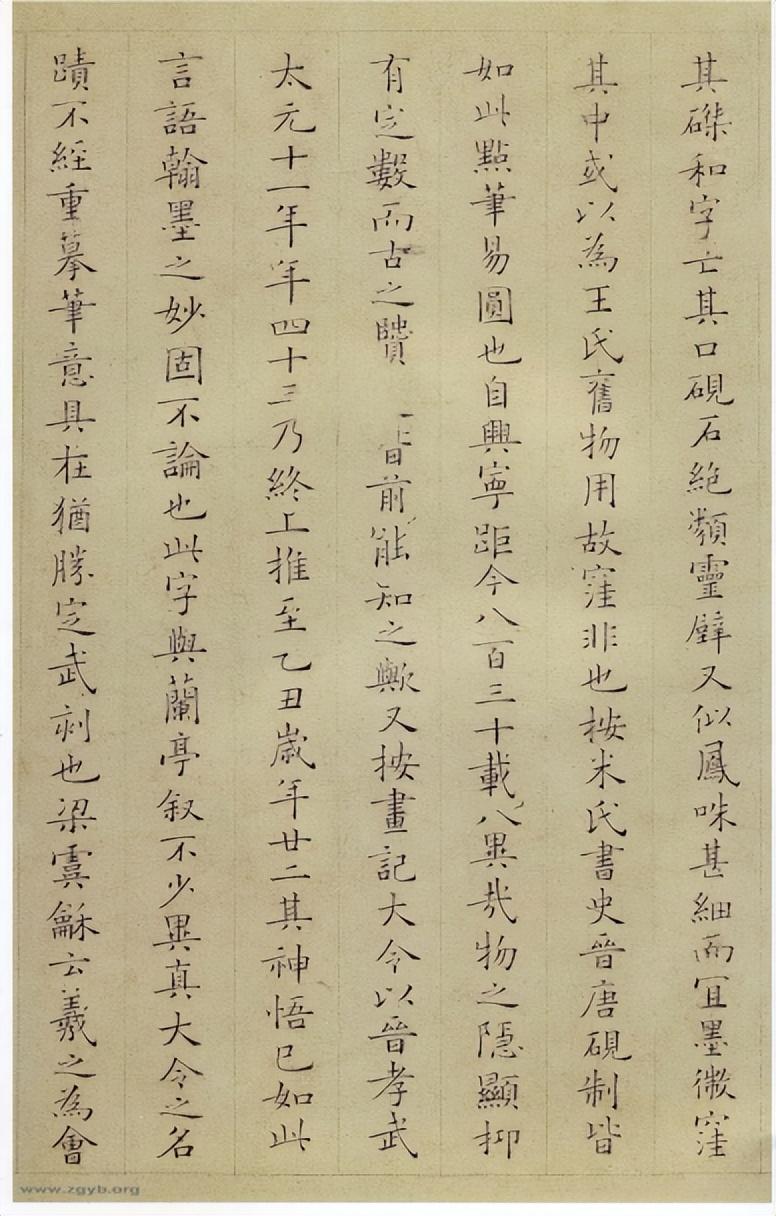 其磔和字亡其口硯石絶類靈璧又似鳳咮甚細而宜墨微窪
其中或以為王氏舊物用故窪非也按米氏書史晉唐硯制皆
如此點筆易圓也自興寧距今八百三十載八異㢤物之隱顯抑
有定數而古之賢 前能知之歟又按畫記大令以晉孝武
太元十一年年四十三乃終上推至乙丑歲年廿二其神悟已如此
言語翰墨之妙固不論也此字與蘭亭叙不少異真大令之名
蹟不經重摹筆意具在猶勝定武刻也梁虞龢云羲之為會
www.zgyb.org